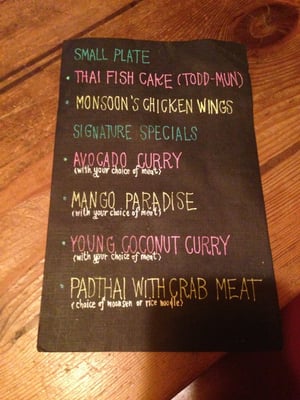 SMALL PLATE
• THAI FISH CAKE (TODD-MUN)
• MONSOON'S CHICKEN WINGS
SIGNATURE SPECIALS
• AVOCADO CURRY
(with your choice of meat)
• MANGO PARADISE
(with your choice of meat)
• YOUNG COCONUT CURRY
(with your choice of meat)
• PADTHAI WITH CRAB MEAT
(choice of woonsen or rice noodle)